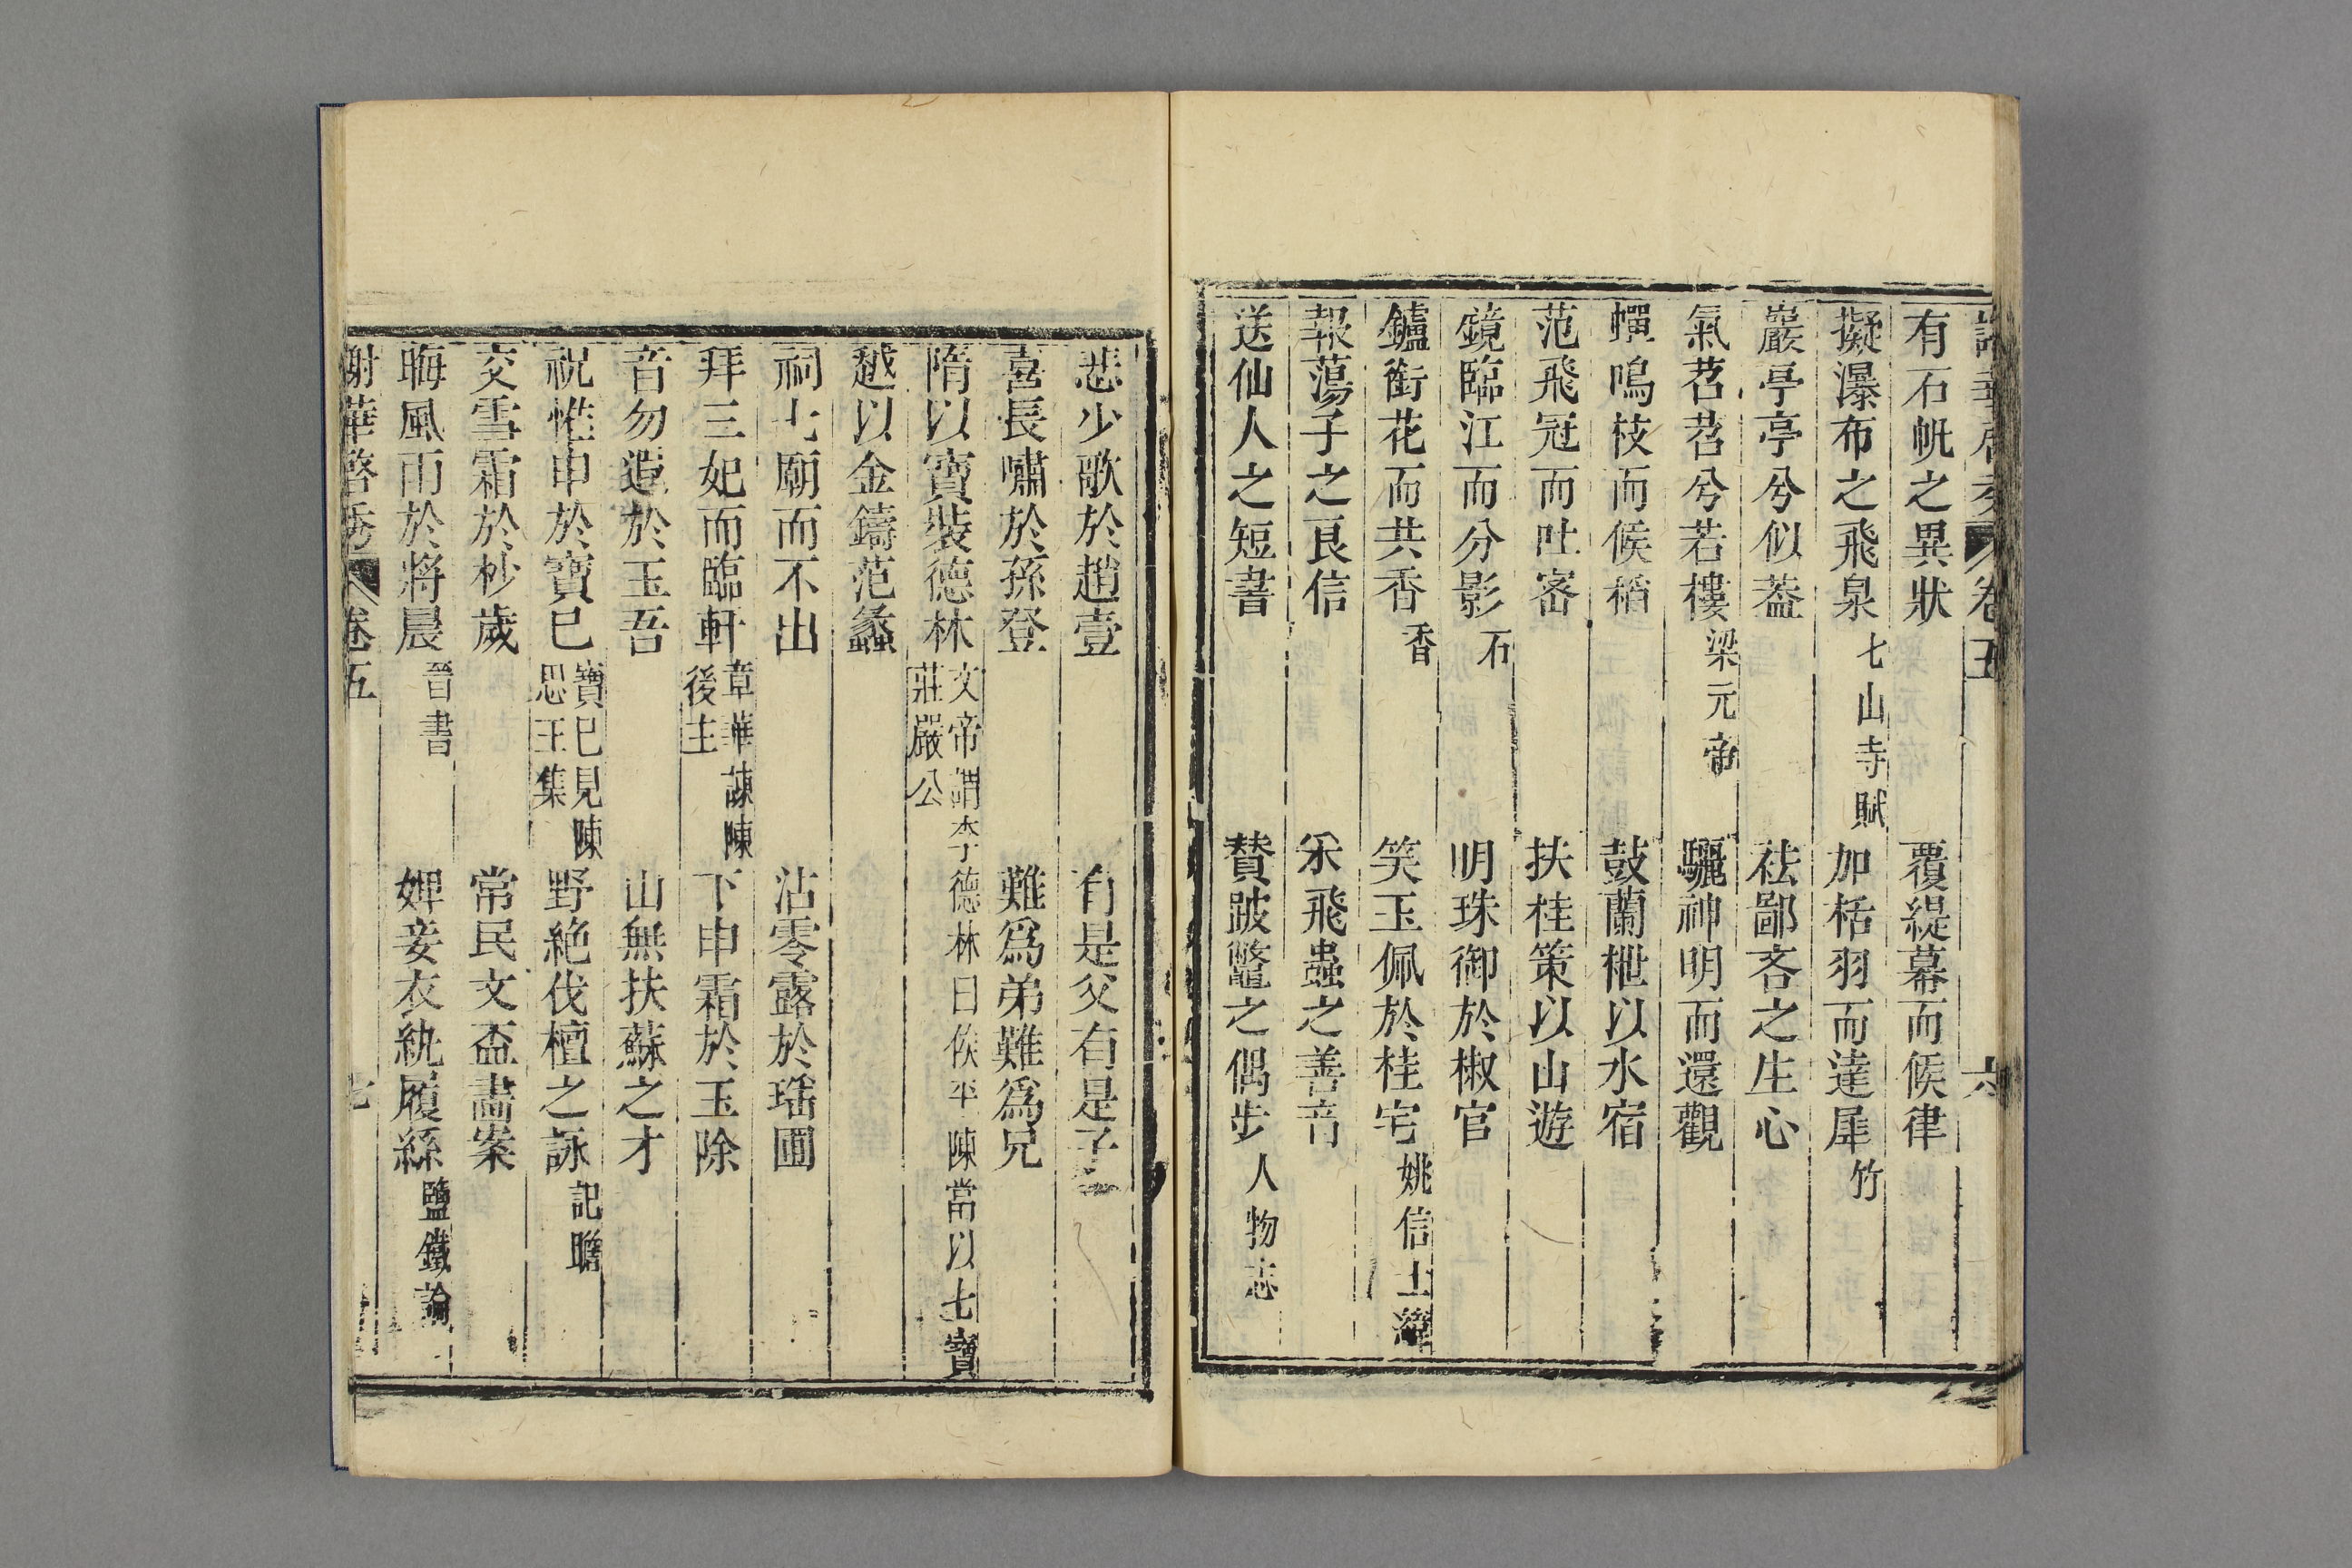 卷五 六
有石帆之異狀 覆緹幕而候律
擬瀑布之飛泉七山寺賦 加栝羽而達犀竹
巖亭亭兮似蓋 袪鄙吝之生心
氣苕苕兮若樓梁元帝 驪神明而還觀
蟬鳴枝而候稻 鼓蘭枻以水宿
范飛冠而吐蜜 扶桂策以山遊
鏡臨江而分影石 明珠御於椒官
鑪銜花而共香香 笑玉佩於桂宅姚信士緯
報蕩子之良信 釆飛蟲之善音
送仙人之短書 賛跛鼈之偶步人物志
悲少歌於趙壹 有是父有是子
喜長嘯於孫登 難爲弟難爲兄
隋以寶裝德林文帝謂李德林曰俟平陳當以七寶莊嚴公
越以金鑄范蠡
祠七廟而不出 沾零露於瑤圃
拜三妃而臨軒章華諫陳後主 下申霜於玉除
音勿遺於玉吾 山無扶蘇之才
祝惟申於寶已寶已見陳思王集 野絶伐檀之詠記瞻
交雪霜於杪歲 常民文盃畵案
晦風雨於將晨晉書 婢妾衣紈履絲鹽鐵論
謝華啓秀 卷五 七